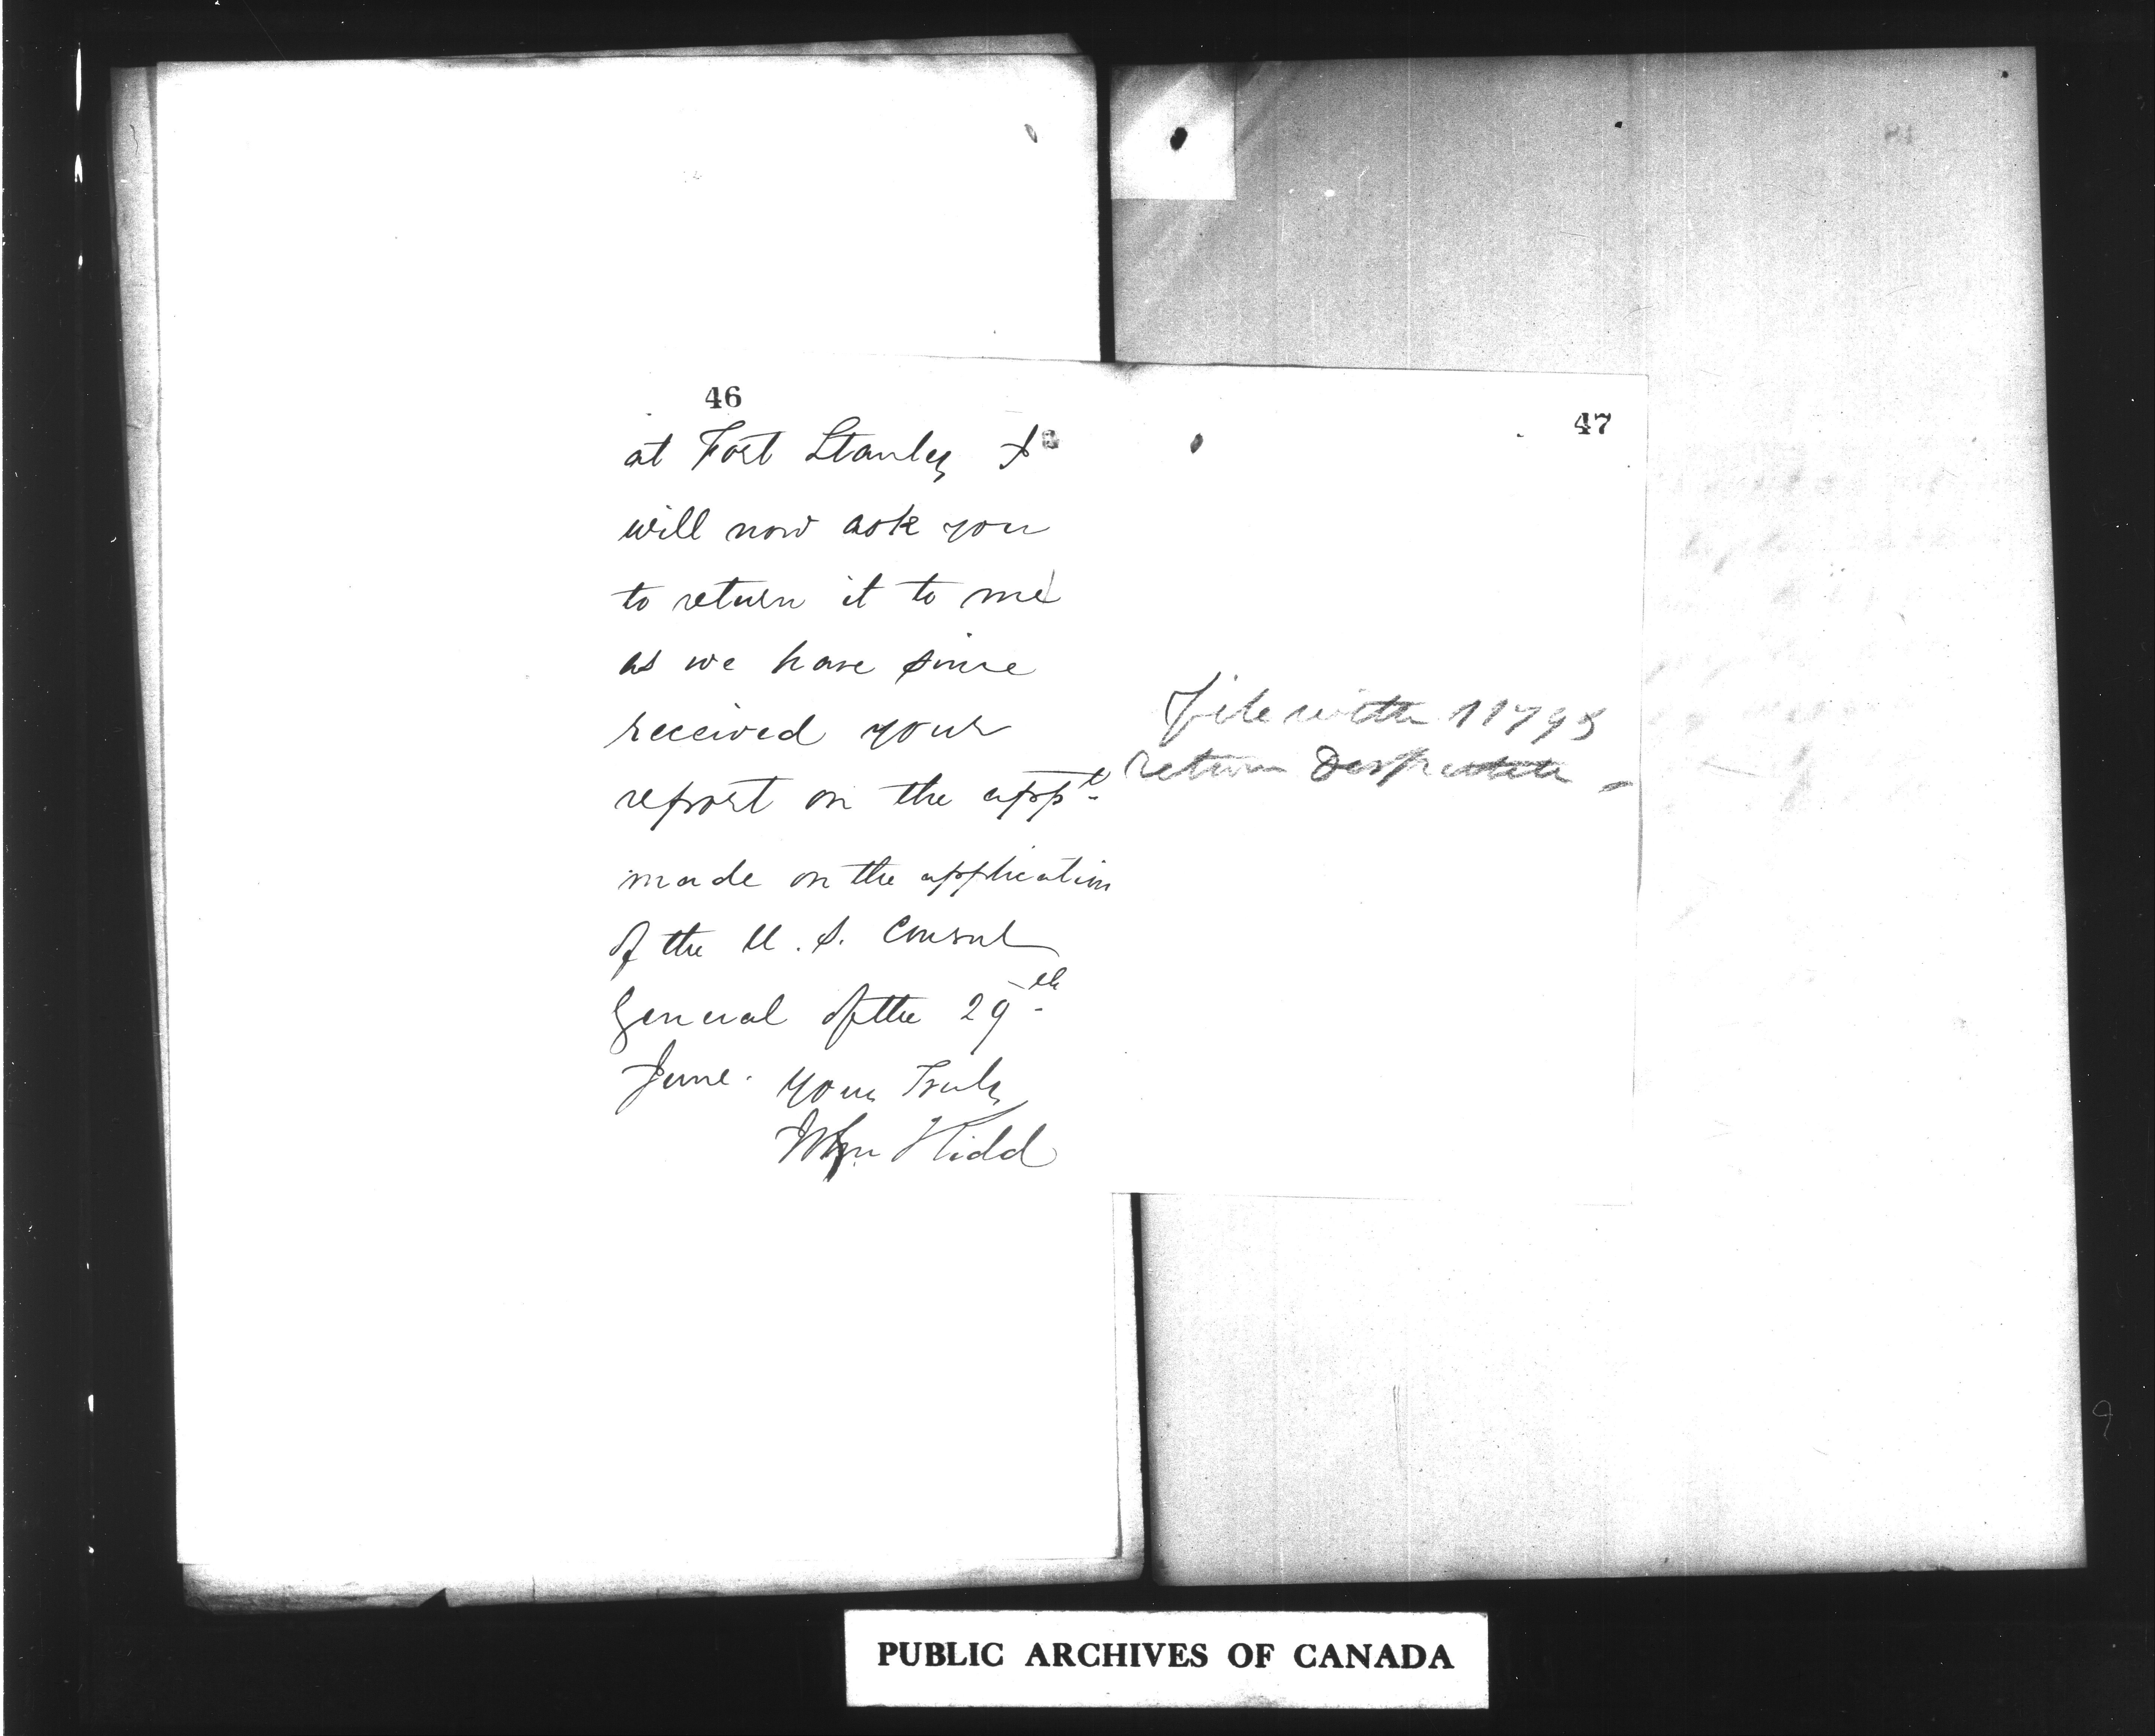 46
at Fort Stanley &
will now ask you
to return it to me
as we have since
received your
report on the app<sup>t</sup>
made on the application
of the U. S. Consul
General of the 29<sup>th</sup>
June. Yours Truly
Kidd
47
file with 11795
return Despatch -
PUBLIC ARCHIVES OF CANADA